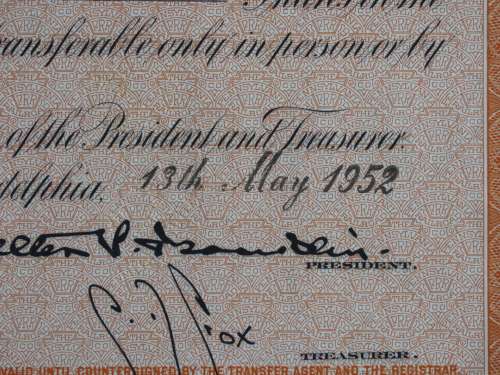 in the
transferable only in person or by
of the President and Treasurer.
delphia, 13th May 1952
P. Franklin.
PRESIDENT.
Fox
TREASURER.
VALID UNTIL COUNTERSIGNED BY THE TRANSFER AGENT AND THE REGISTRAR.